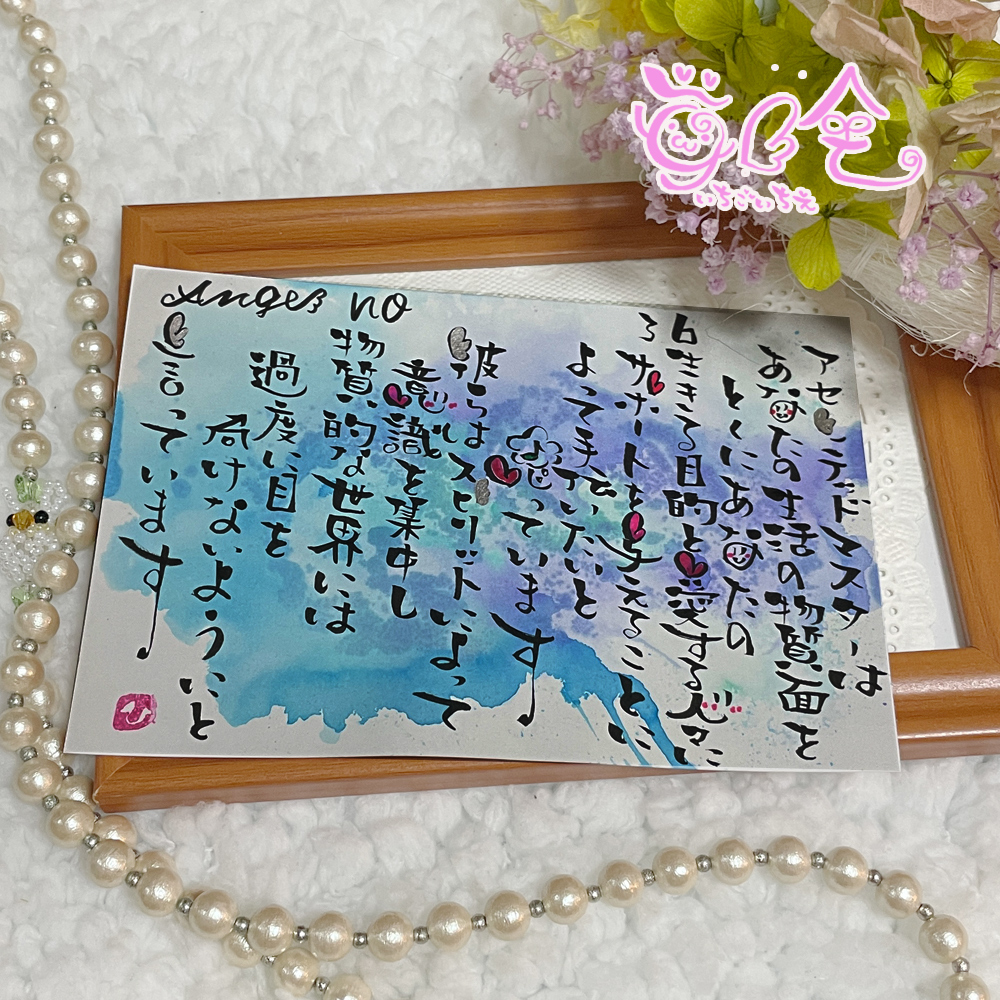 いちごいちえ
Angel no
アセンデッドマスターは
あなたの生活の物質面を
とくにあなたの
生きる目的と愛する人々に
サポートを与えることに
よって手伝いたいと
思っています
彼らはスピリットによって
意識を集中し
物質的な世界には
過度に目を
向けないようにと
言っています